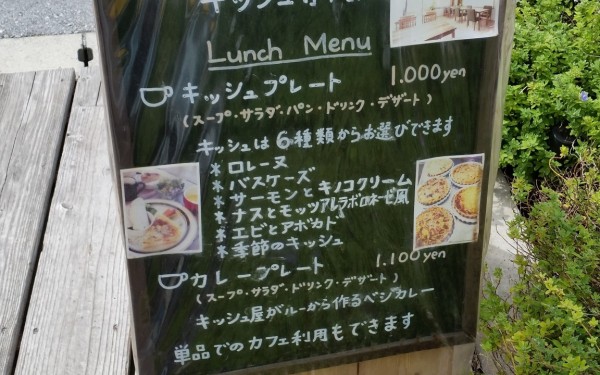 キッシュ専
Lunch Menu
キッシュプレート 1.000yen
(スープ・サラダ・パン・ドリンク・デザート)
キッシュは6種類からお選びできます
*ロレーヌ
*バスケーズ
*サーモンとキノコクリーム
*ナスとモッツアレラボロネーゼ風
*エビとアボカド
*季節のキッシュ
カレープレート 1.100yen
(スープ・サラダ・ドリンク・デザート)
キッシュ屋がルーから作るベジカレー
単品でのカフェ利用もできます